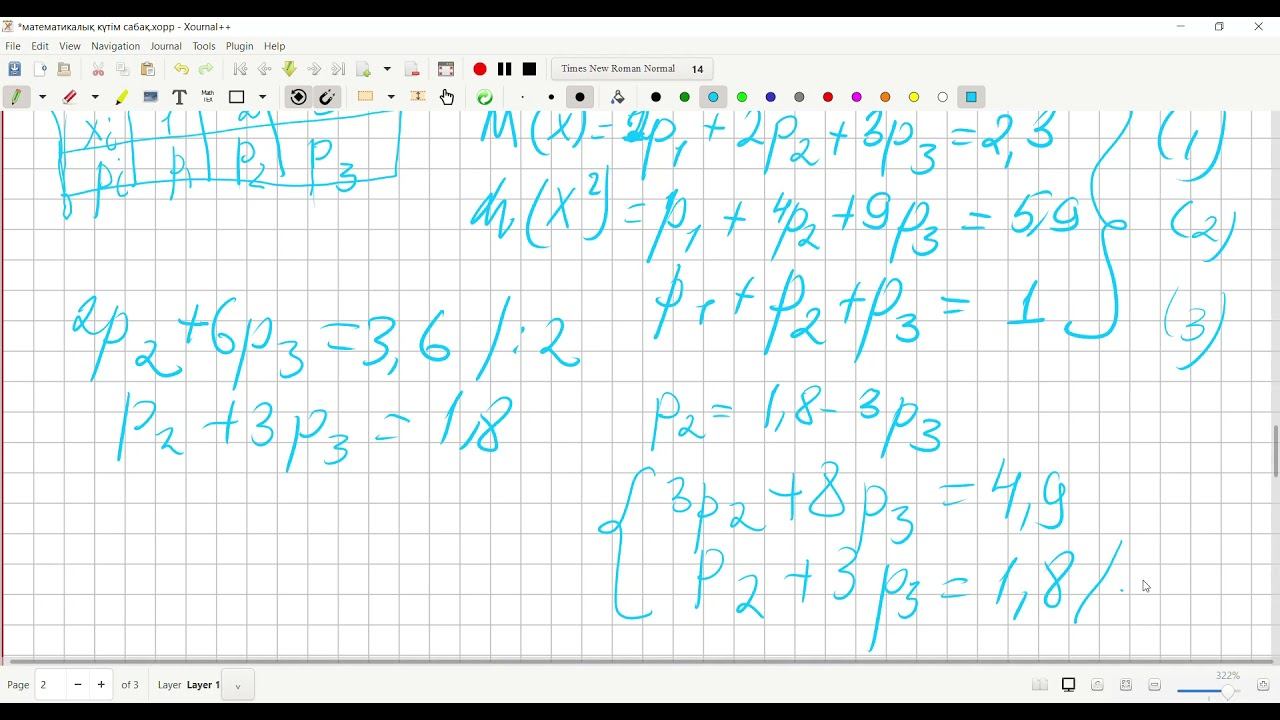 *математикалық күтім сабақ.xopp - Xournal++
File Edit View Navigation Journal Tools Plugin Help
Times New Roman Normal 14
xi 1 2
pi p1 p2 p3
M(X)=1p1+2p2+3p3=2,3 (1)
M(X²)=p1+4p2+9p3=5,9 (2)
p1+p2+p3=1 (3)
2p2+6p3=3,6 /:2
p2+3p3=1,8
p2=1,8-3p3
3p2+8p3=4,9
p2+3p3=1,8 / .
Page 2 - + of 3 Layer Layer 1 322%